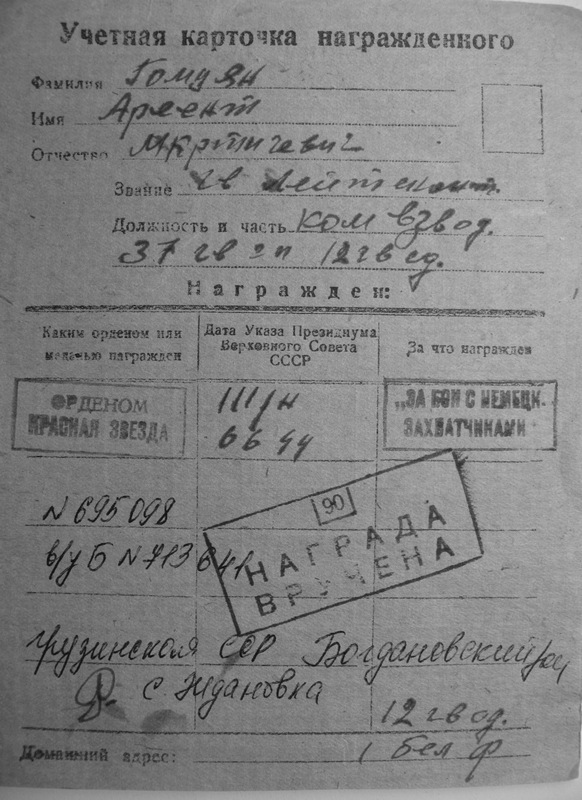 Учетная карточка награжденного
Фамилия Гомцян
Имя Арсент
Отчество Мкртичевич
Звание гв лейтенант.
Должность и часть ком взвод.
37 гв сп 12 гв сд.
Награжден:
Каким орденом или медалью награжден
Дата Указа Президиума Верховного Совета СССР
За что награжден
ОРДЕНОМ
КРАСНАЯ ЗВЕЗДА
111/н
6 6 44
„ЗА БОИ С НЕМЕЦК.
ЗАХВАТЧИКАМИ
N 695098
90
НАГРАДА
ВРУЧЕНА
в/у Б N 713641
Грузинская ССР Богдановский
с Ждановка
12 гвсд.
Домашний адрес: 1 бел ф